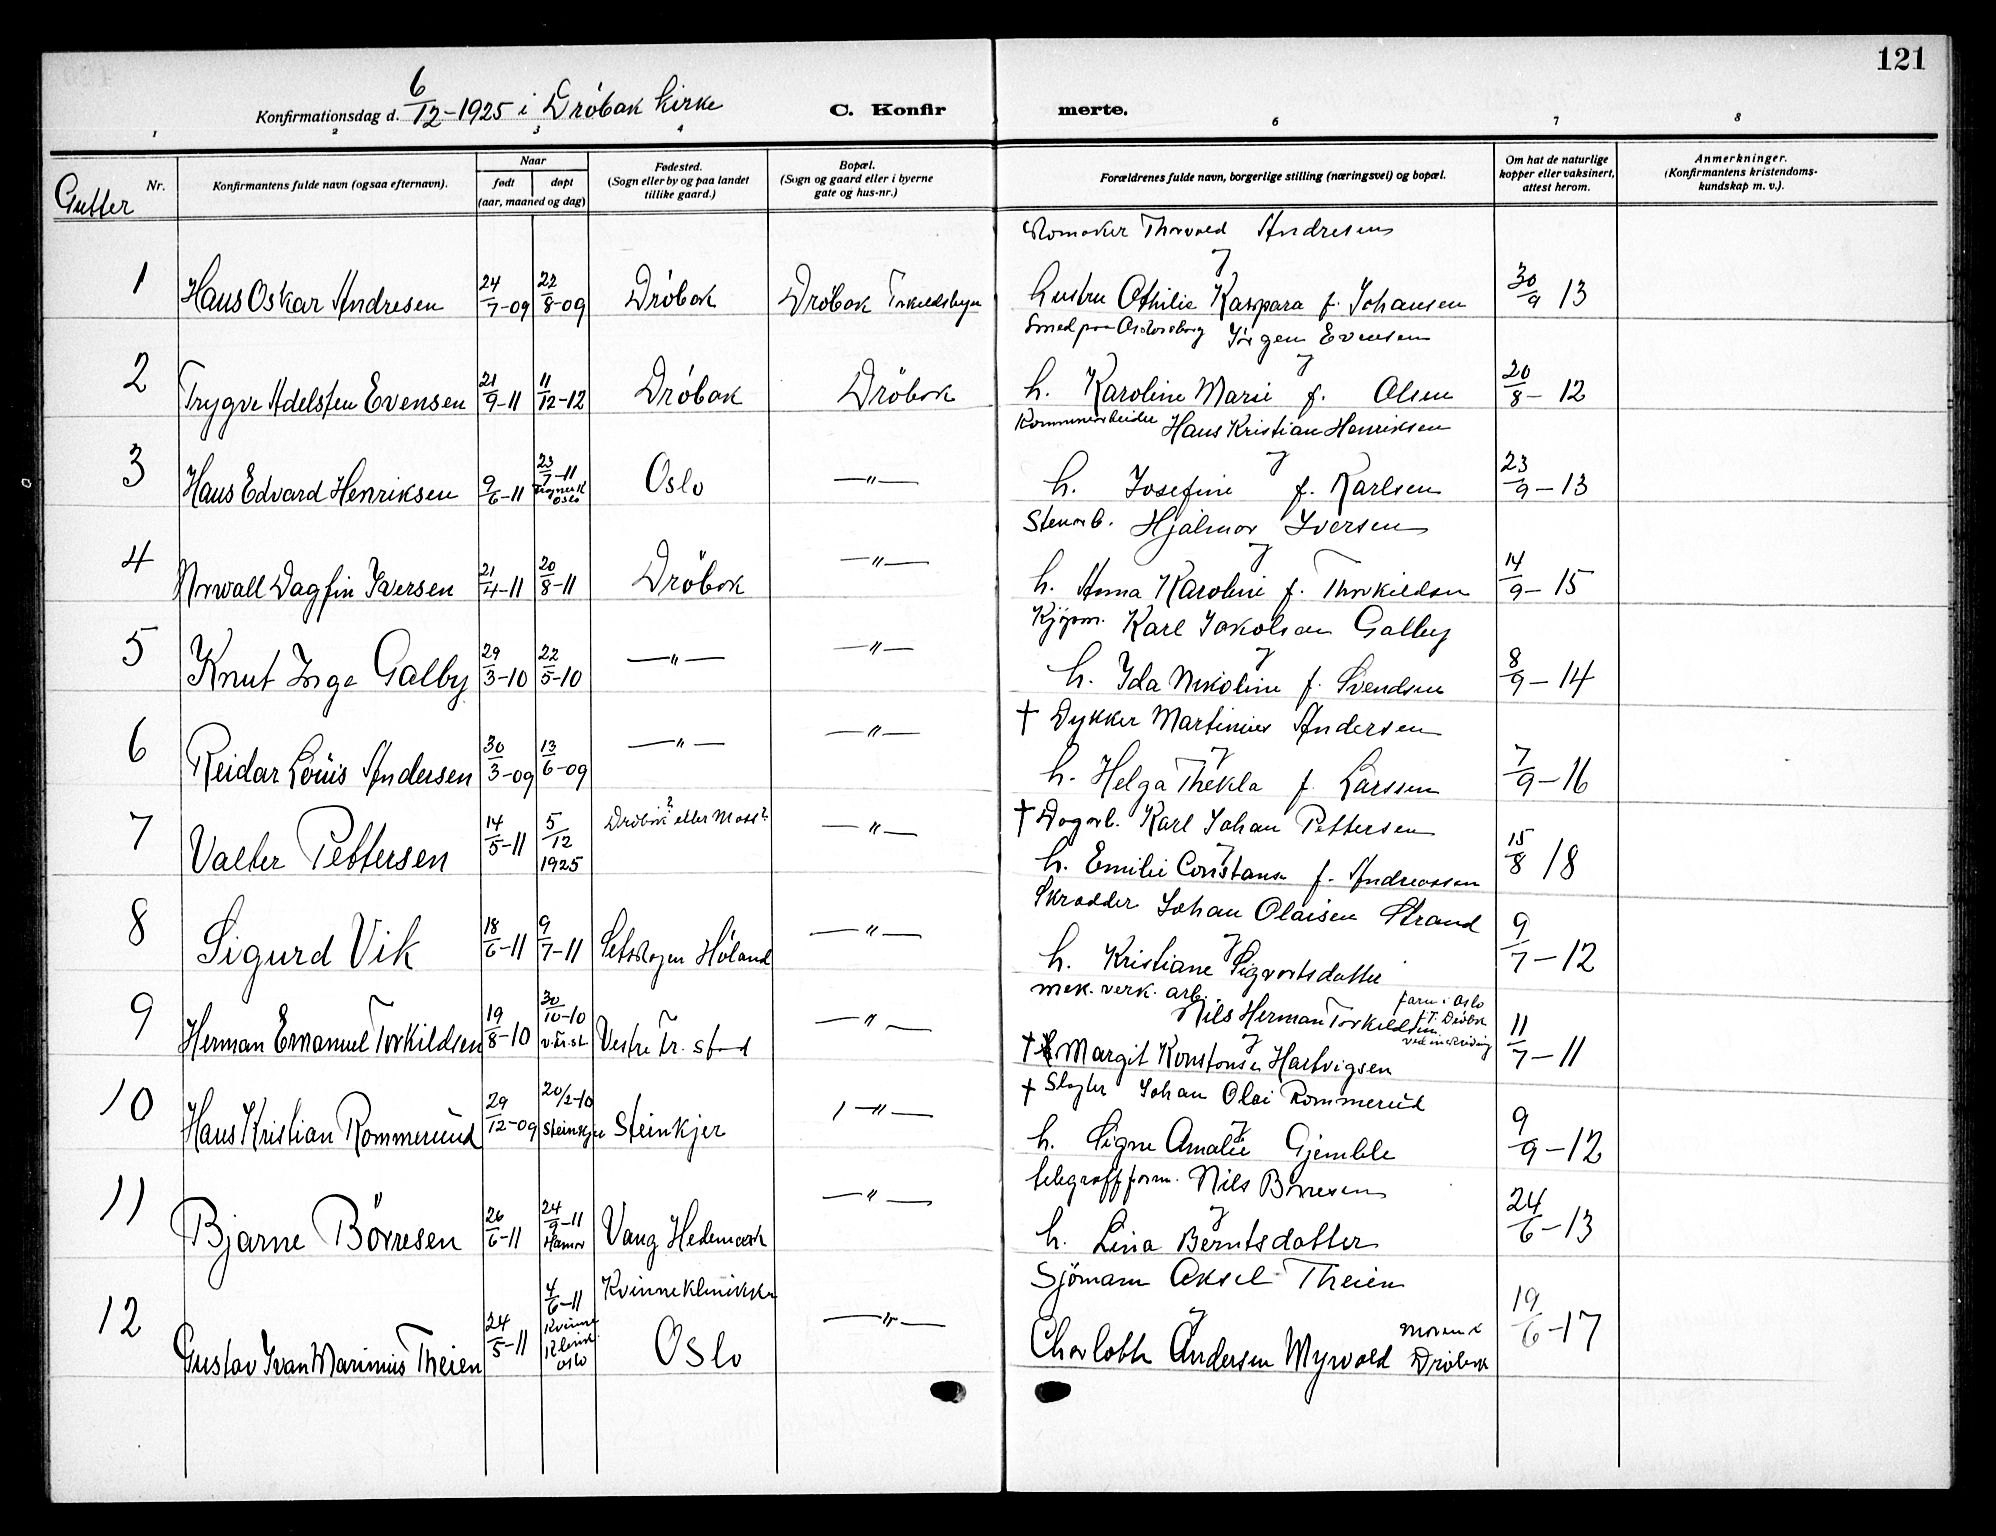 121
Konfirmationsdag d. 6/12-1925 i Dröbak kirke
C. Konfirmerte.
1 2 3 4 6 7 8
Gutter
Nr.
Konfirmantens fulde navn (ogsaa efternavn).
Naar
født
døpt
(aar, maaned og dag)
Fødested.
(Sogn eller by og paa landet
tillike gaard.)
Bopæl.
(Sogn og gaard eller i byerne
gate og hus-nr.)
Forældrenes fulde navn, borgerlige stilling (næringsvei) og bopæl.
Om hat de naturlige
kopper eller vaksinert,
attest herom.
Anmerkninger.
(Konfirmantens kristendoms-
kundskap m. v.).
Thorvald Andresen
1 Hans Oskar Andresen 24/7-09 22/8-09 Dröbak Dröbak
og
hustru Othilie Kaspara f. Johansen 30/9 13
Smed paa Jörgen Evensen
2 Trygve Adelsten Evensen 21/9-11 11/12-12 Dröbak Dröbak
og
h. Karoline Marie f. Olsen 20/8-12
Hans Kristian Henriksen
3 Hans Edvard Henriksen 9/6-11 23/7-11 Oslo Oslo —"—
og
h. Josefine f. Karlsen 23/9-13
Stenarb. Hjalmar Iversen
4 Norwall Dagfin Iversen 21/4-11 20/8-11 Dröbak —"—
og
h. Anna Karoline f. Thorkildsen 14/9-15
Kjøpm. Karl Jakobsen Galby
5 Knut Inge Galby 29/3-10 22/5-10 —"— —"—
og
h. Ida Nikoline f. Svendsen 8/9-14
† Dykker Martinius Andersen
6 Reidar Louis Andersen 30/3-09 13/6-09 —"— —"—
og
h. Helga Thekla f. Larssen 7/9-16
† Dagarb. Karl Johan Pettersen
7 Valter Pettersen 14/5-11 5/12 1925 Dröbak? eller Moss? —"—
og
h. Emilie Constanse f. Andreassen 15/8 18
Skrædder Johan Olaisen Strand
8 Sigurd Vik 18/6-11 9/7-11 Setskogen Höland —"—
og
h. Kristiane Sigvartsdatter 9/7-12
mek. verk. arb.
Nils Herman Torkildsen
faren i Oslo
9 Herman Emanuel Torkildsen 19/8-10 30/10-10 v.Fr.st. Vestre Fr. stad —"—
og
† Margit Konstanse Hartvigsen 11/7-11
† Slagter Johan Olai Rommerud
10 Hans Kristian Rommerud 29/12-09 20/2-10 Steinkjer Steinkjer —"—
og
h. Signe Amalie Gjemble 9/9-12
telegraff.form. Nils Börresen
11 Bjarne Börresen 26/6-11 24/9-11 Hamar Vang Hedemark —"—
og
h. Lina Berntsdatter 24/6-13
Sjömann Aksel Theien
12 Gustav Ivan Marinius Theien 24/5-11 4/6-11 Kvinne Klinik Oslo Kvinneklinikken Oslo —"—
og
Charlotte Andersen Myrvold moren i Dröbak 19/6-17